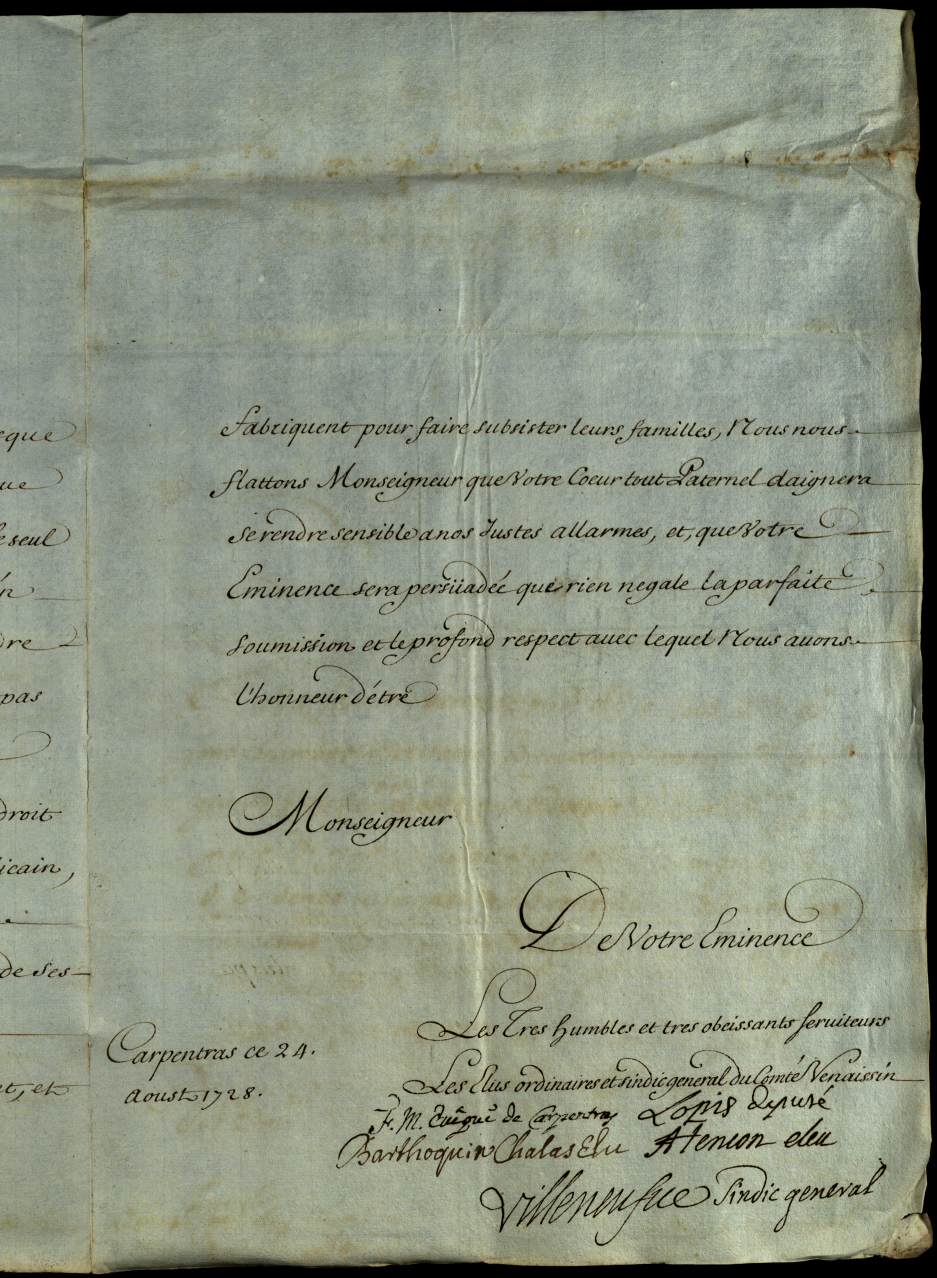 eque
ue
le seul
én
dre
pas
droit
licain,
de ses
et, et
fabriquent pour faire subsister leurs familles, Nous nous
flattons Monseigneur que Votre Coeur tout Paternel daignera
se rendre sensible a nos Justes allarmes, et, que Votre
Eminence sera persüadée que rien negale la parfaite
soumission et le profond respect auec lequel Nous auons
l'honneur d'étre
Monseigneur
De Votre Eminence
Les Tres humbles et tres obeissants seruiteurs
Les Elus ordinaires et sindic general du Comté Venaissin
Carpentras ce 24.
aoust 1728.
F. M. Euêque de Carpentras Lopis deputé
Barthoquin Chalas Elu Atenion eleu
Villeneufue Sindic general